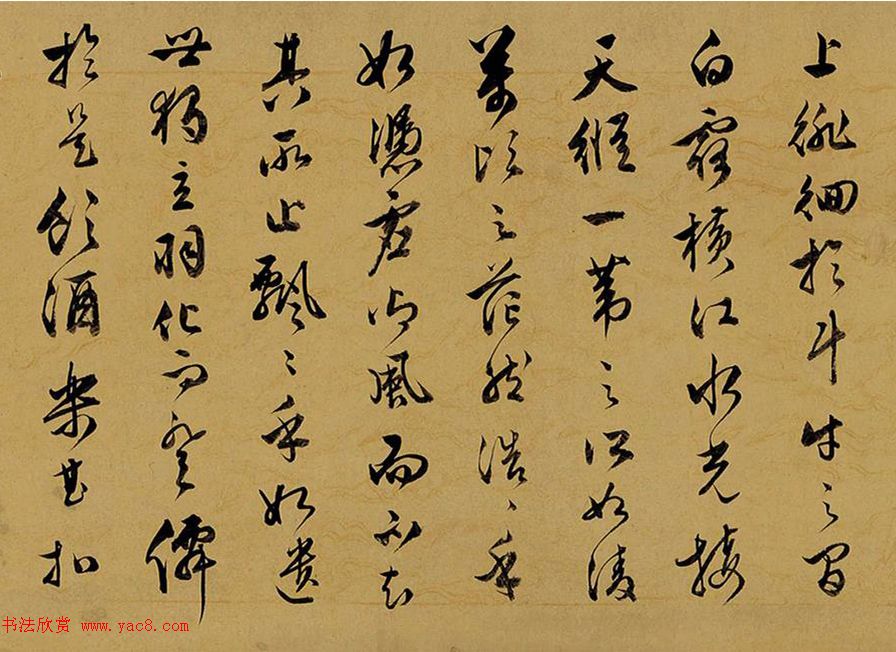 上徘徊於斗牛之間
白露橫江水光接
天縱一葦之所如陵
萬頃之茫然浩〻乎
如憑虛御風而不知
其所止飄〻乎如遺
世獨立羽化而登僊
於是飲酒樂甚扣
书法欣赏 www.yac8.com